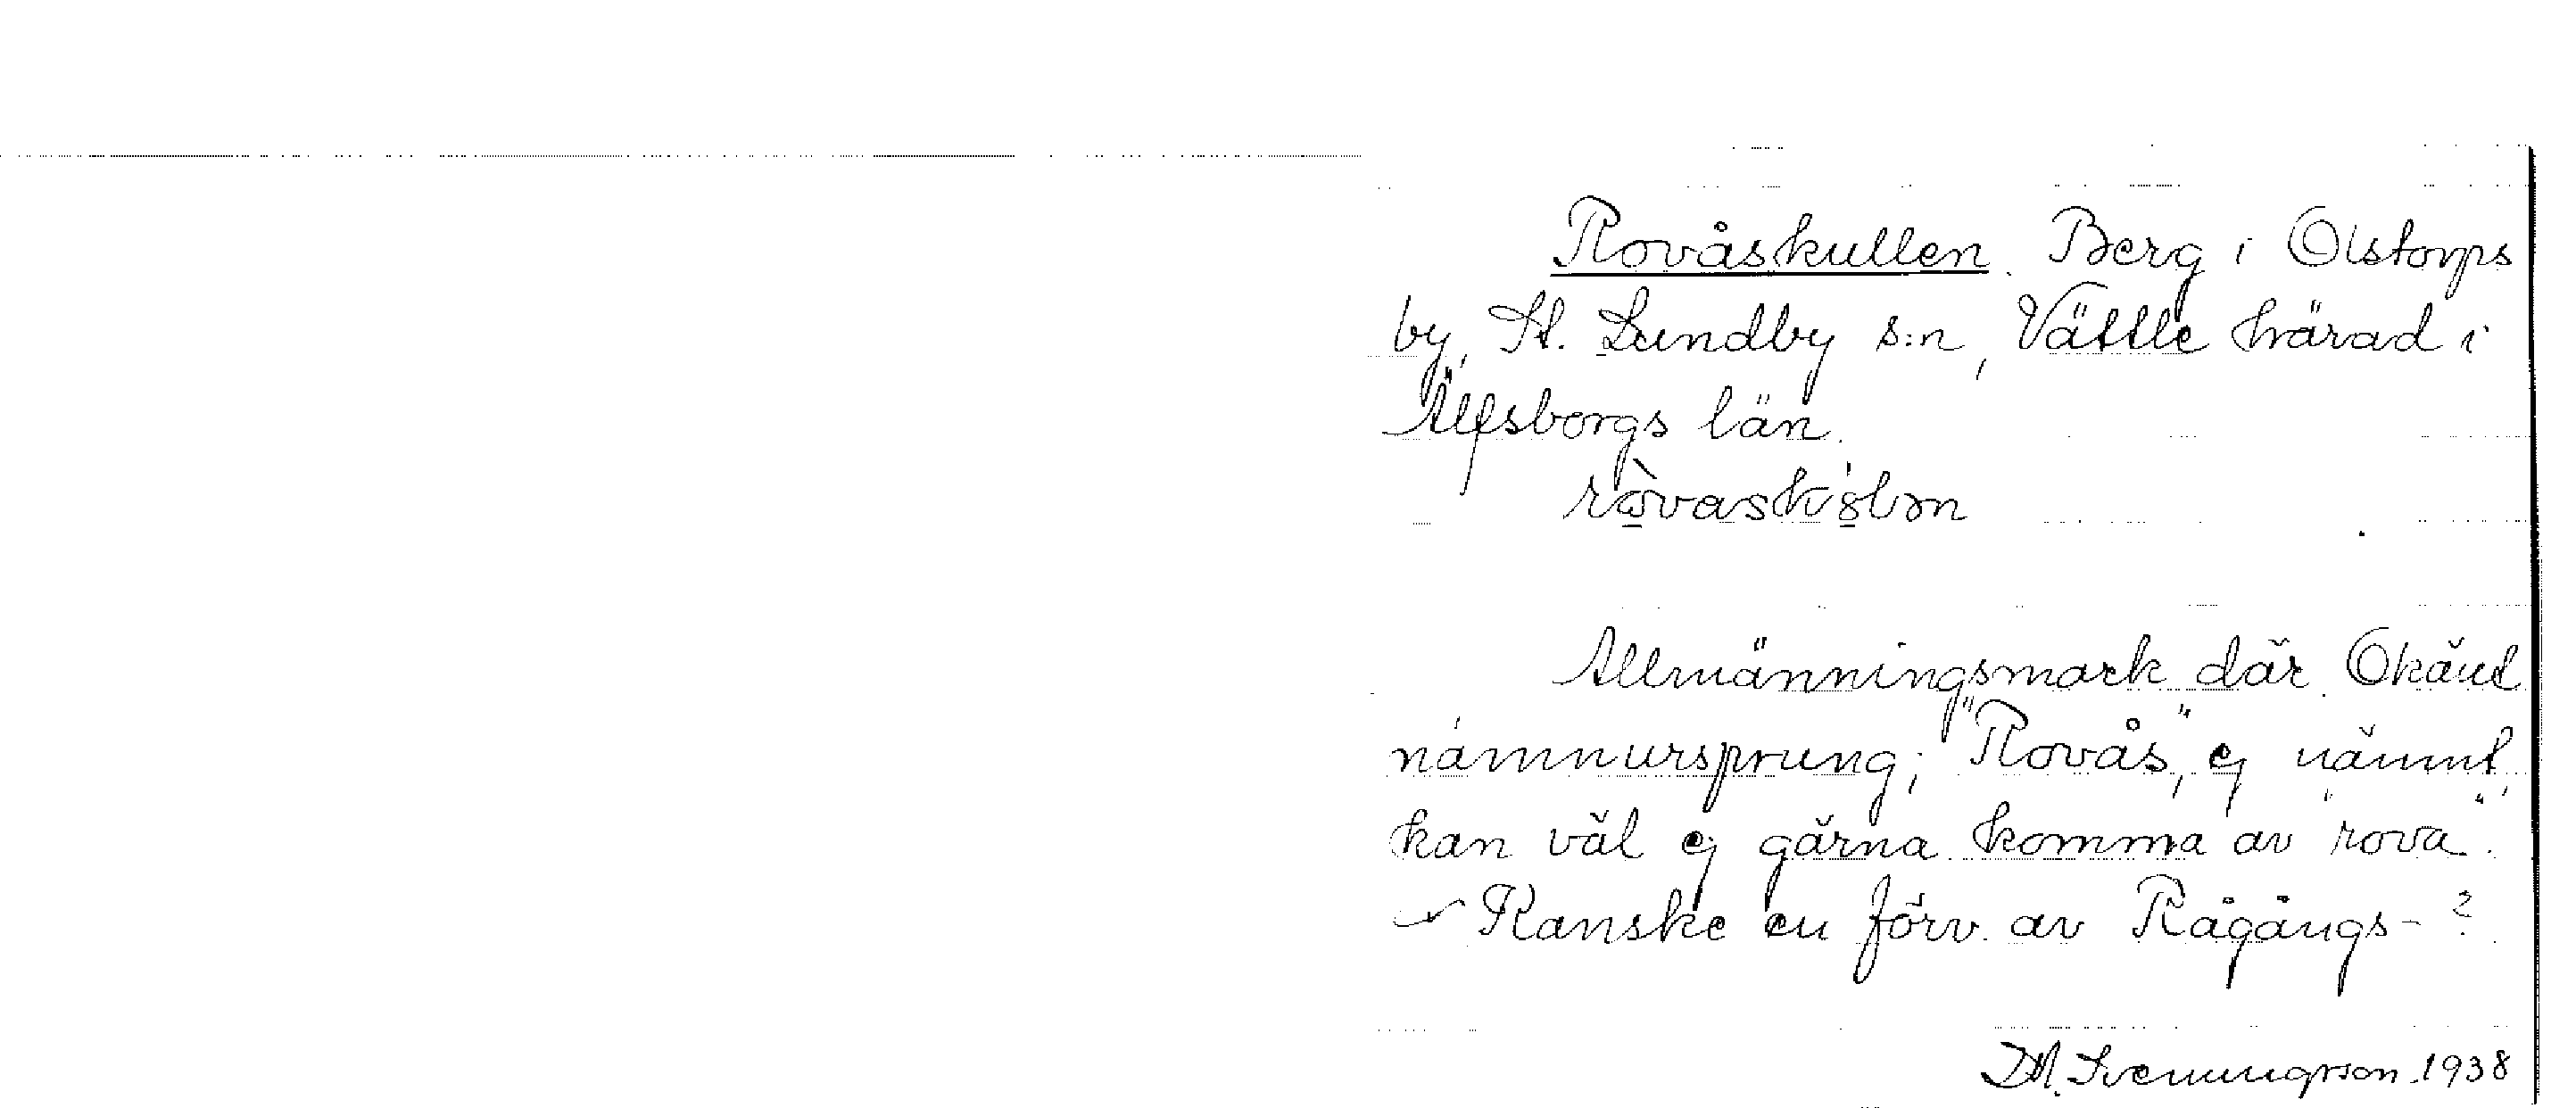 Rovåskullen. Berg i Olstorps
by, St. Lundby s:n, Vättle härad i
Älfsborgs län.
Allmänningsmark där. Okänt
namnursprung; "Rovås", ej nämnt,
kan väl ej gärna komma av "rova".
Kanske en förv. av Rågångs- ?
Svenungsson 1938